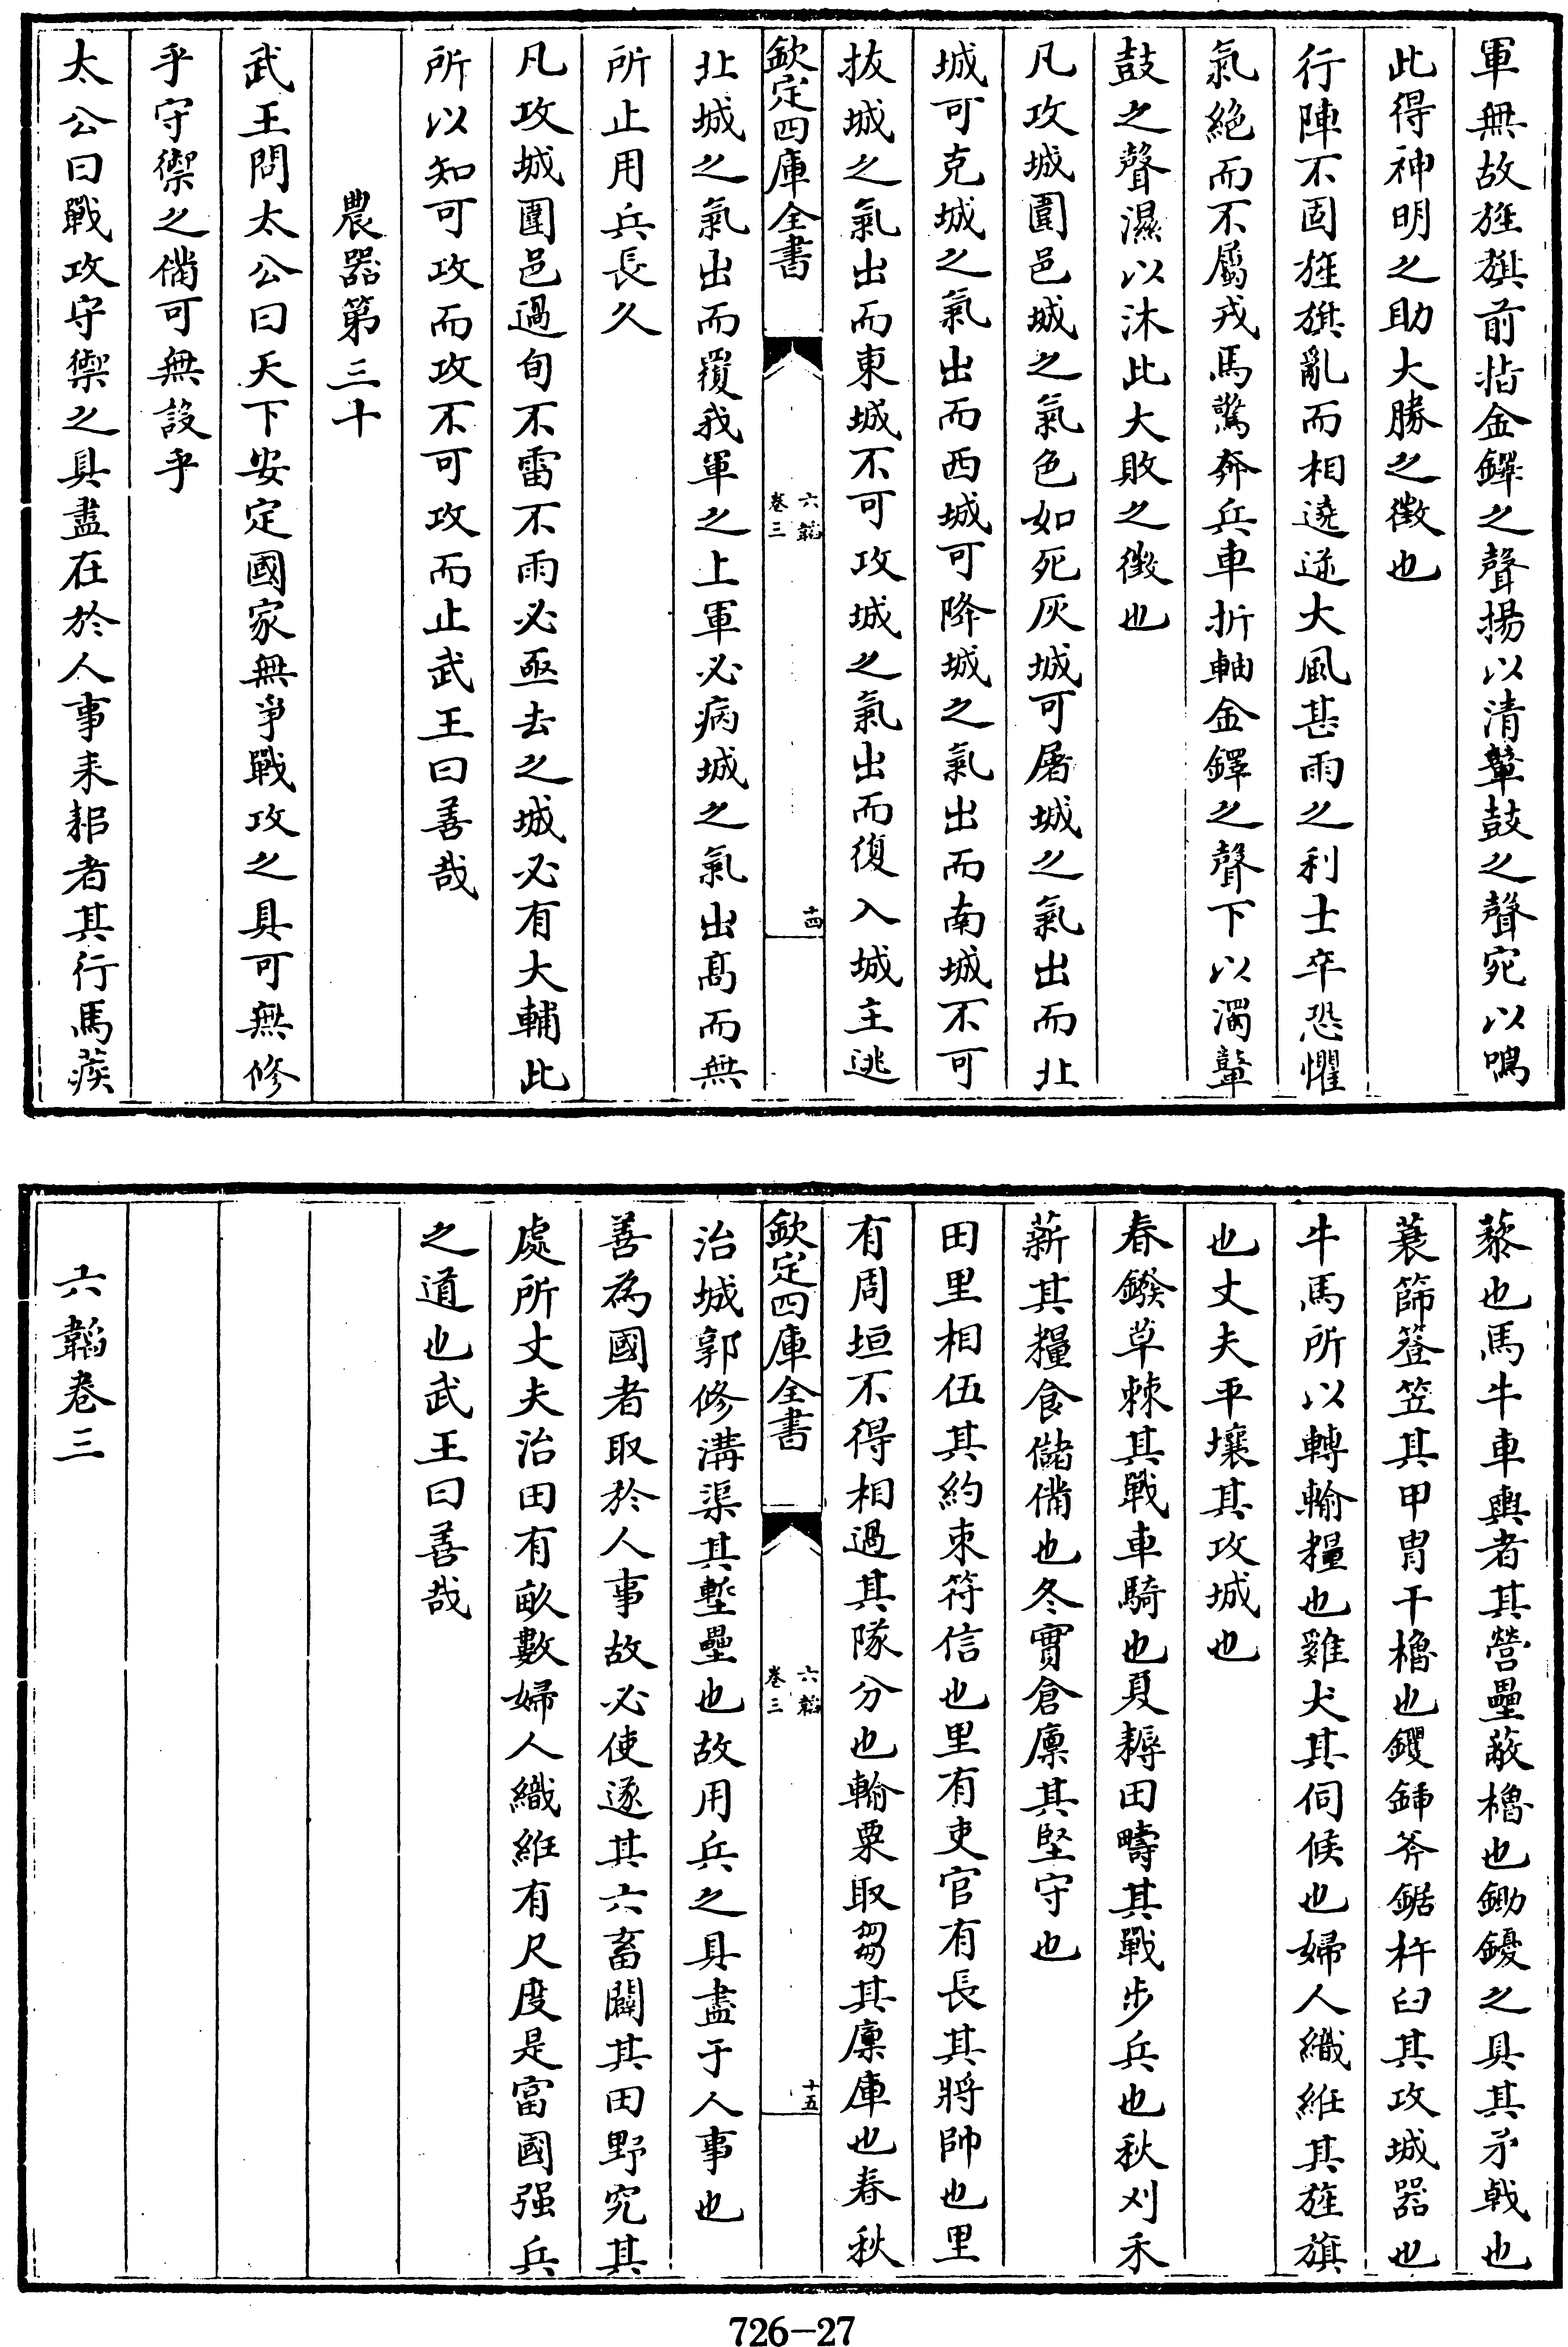 軍無故旌旗前指金鐸之聲揚以清鼙鼓之聲宛以鳴
此得神明之助大勝之徵也
行陣不固旌旗亂而相遶逆大風甚雨之利士卒恐懼
氣絶而不屬戎馬驚奔兵車折軸金鐸之聲下以濁鼙
鼓之聲濕以沐此大敗之徵也
凡攻城圍邑城之氣色如死灰城可屠城之氣出而北
城可克城之氣出而西城可降城之氣出而南城不可
拔城之氣出而東城不可攻城之氣出而復入城主逃
欽定四庫全書
六韜
卷三
十四
北城之氣出而覆我軍之上軍必病城之氣出髙而無
所止用兵長久
凡攻城圍邑過旬不雷不雨必亟去之城必有大輔此
所以知可攻而攻不可攻而止武王曰善哉
農器第三十
武王問太公曰天下安定國家無爭戰攻之具可無修
乎守禦之備可無設乎
太公曰戰攻守禦之具盡在於人事耒耜者其行馬蒺
藜也馬牛車輿者其營壘蔽櫓也鋤耰之具其矛戟也
蓑薜簦笠其甲胄干櫓也钁鍤斧鋸杵臼其攻城器也
牛馬所以轉輸糧也雞犬其伺候也婦人織絍其旌旗
也丈夫平壤其攻城也
春鏺草棘其戰車騎也夏耨田疇其戰步兵也秋刈禾
薪其糧食儲備也冬實倉廩其堅守也
田里相伍其約束符信也里有吏官有長其將帥也里
有周垣不得相過其隊分也輸粟取芻其廩庫也春秋
欽定四庫全書
六韜
卷三
十五
治城郭修溝渠其塹壘也故用兵之具盡于人事也
善為國者取於人事故必使遂其六畜闢其田野究其
處所丈夫治田有畝數婦人織絍有尺度是富國强兵
之道也武王曰善哉
六韜卷三
726-27